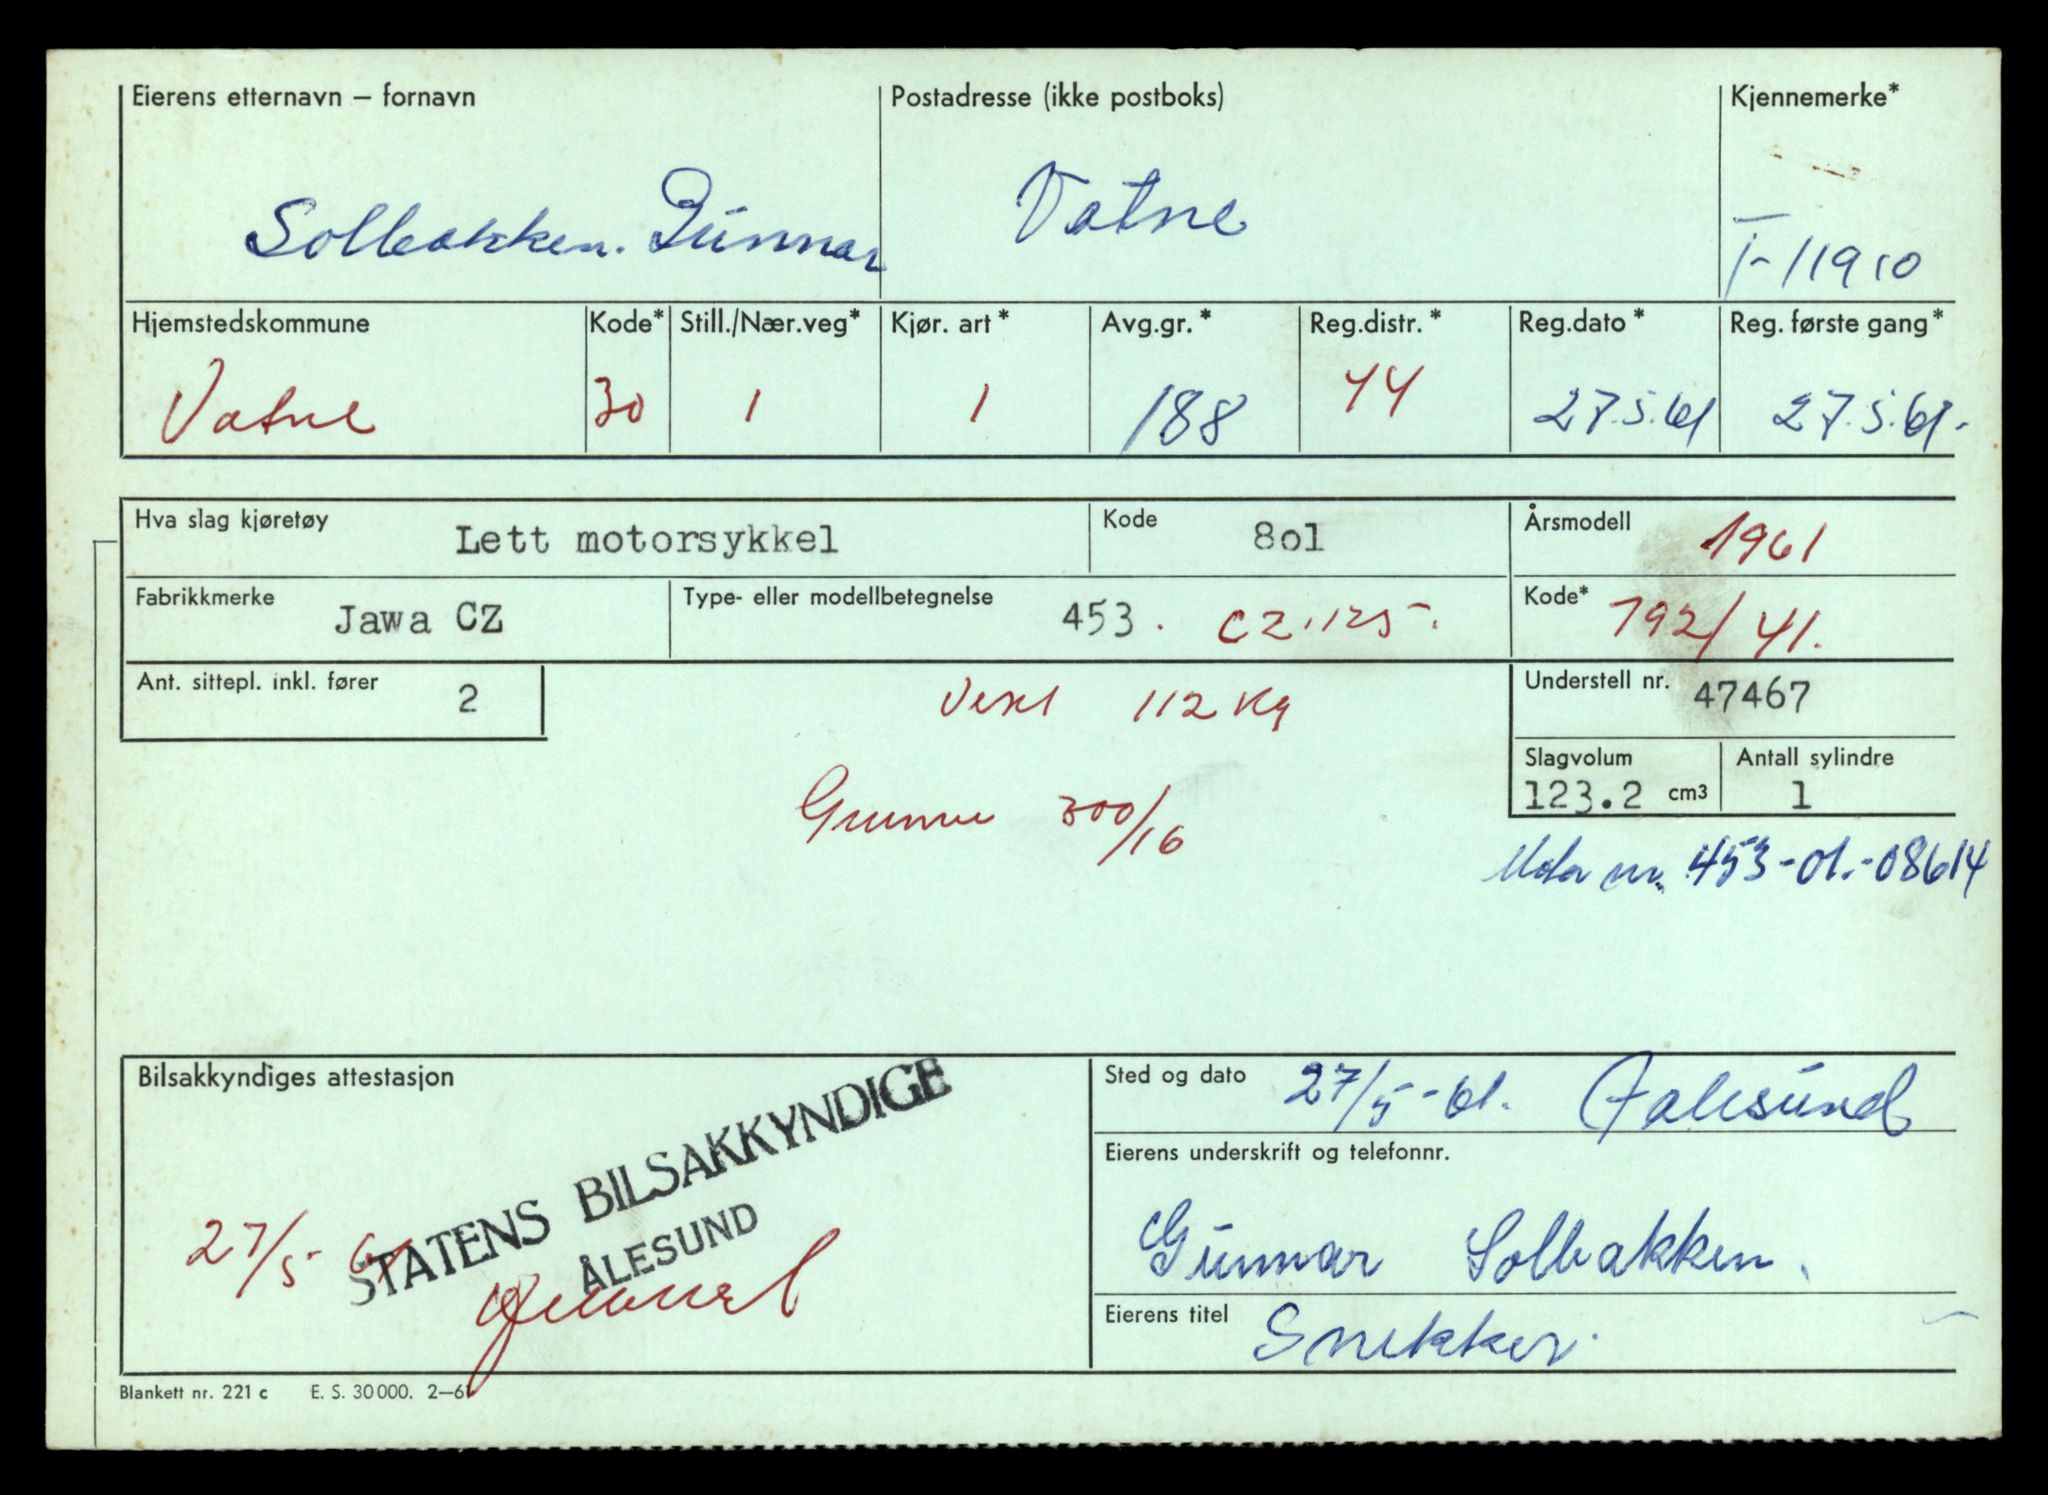 Eierens etternavn – fornavn Postadresse (ikke postboks) Kjennemerke*
Solbakken. Gunnar Vatne T-11910
Hjemstedskommune Kode* Still./Nær.veg* Kjør. art* Avg.gr.* Reg.distr.* Reg.dato* Reg. første gang*
Vatne 30 1 1 188 44 27.5.61 27.5.61.
Hva slag kjøretøy Lett motorsykkel Kode 8o1 Årsmodell 1961
Fabrikkmerke Jawa CZ Type- eller modellbetegnelse 453. CZ.125. Kode* 792/41.
Ant. sittepl. inkl. fører 2 Vekt 112 Kg Understell nr. 47467
Slagvolum Antall sylindre
123.2 cm3 1
Gummi 300/16
Motor nr. 453-01-08614
Bilsakkyndiges attestasjon Sted og dato 27/5-61. Aalesund
STATENS BILSAKKYNDIGE
ÅLESUND
27/5-61
Eierens underskrift og telefonnr.
Gunnar Solbakken.
Eierens titel Snekker.
Blankett nr. 221 c E. S. 30000. 2–61